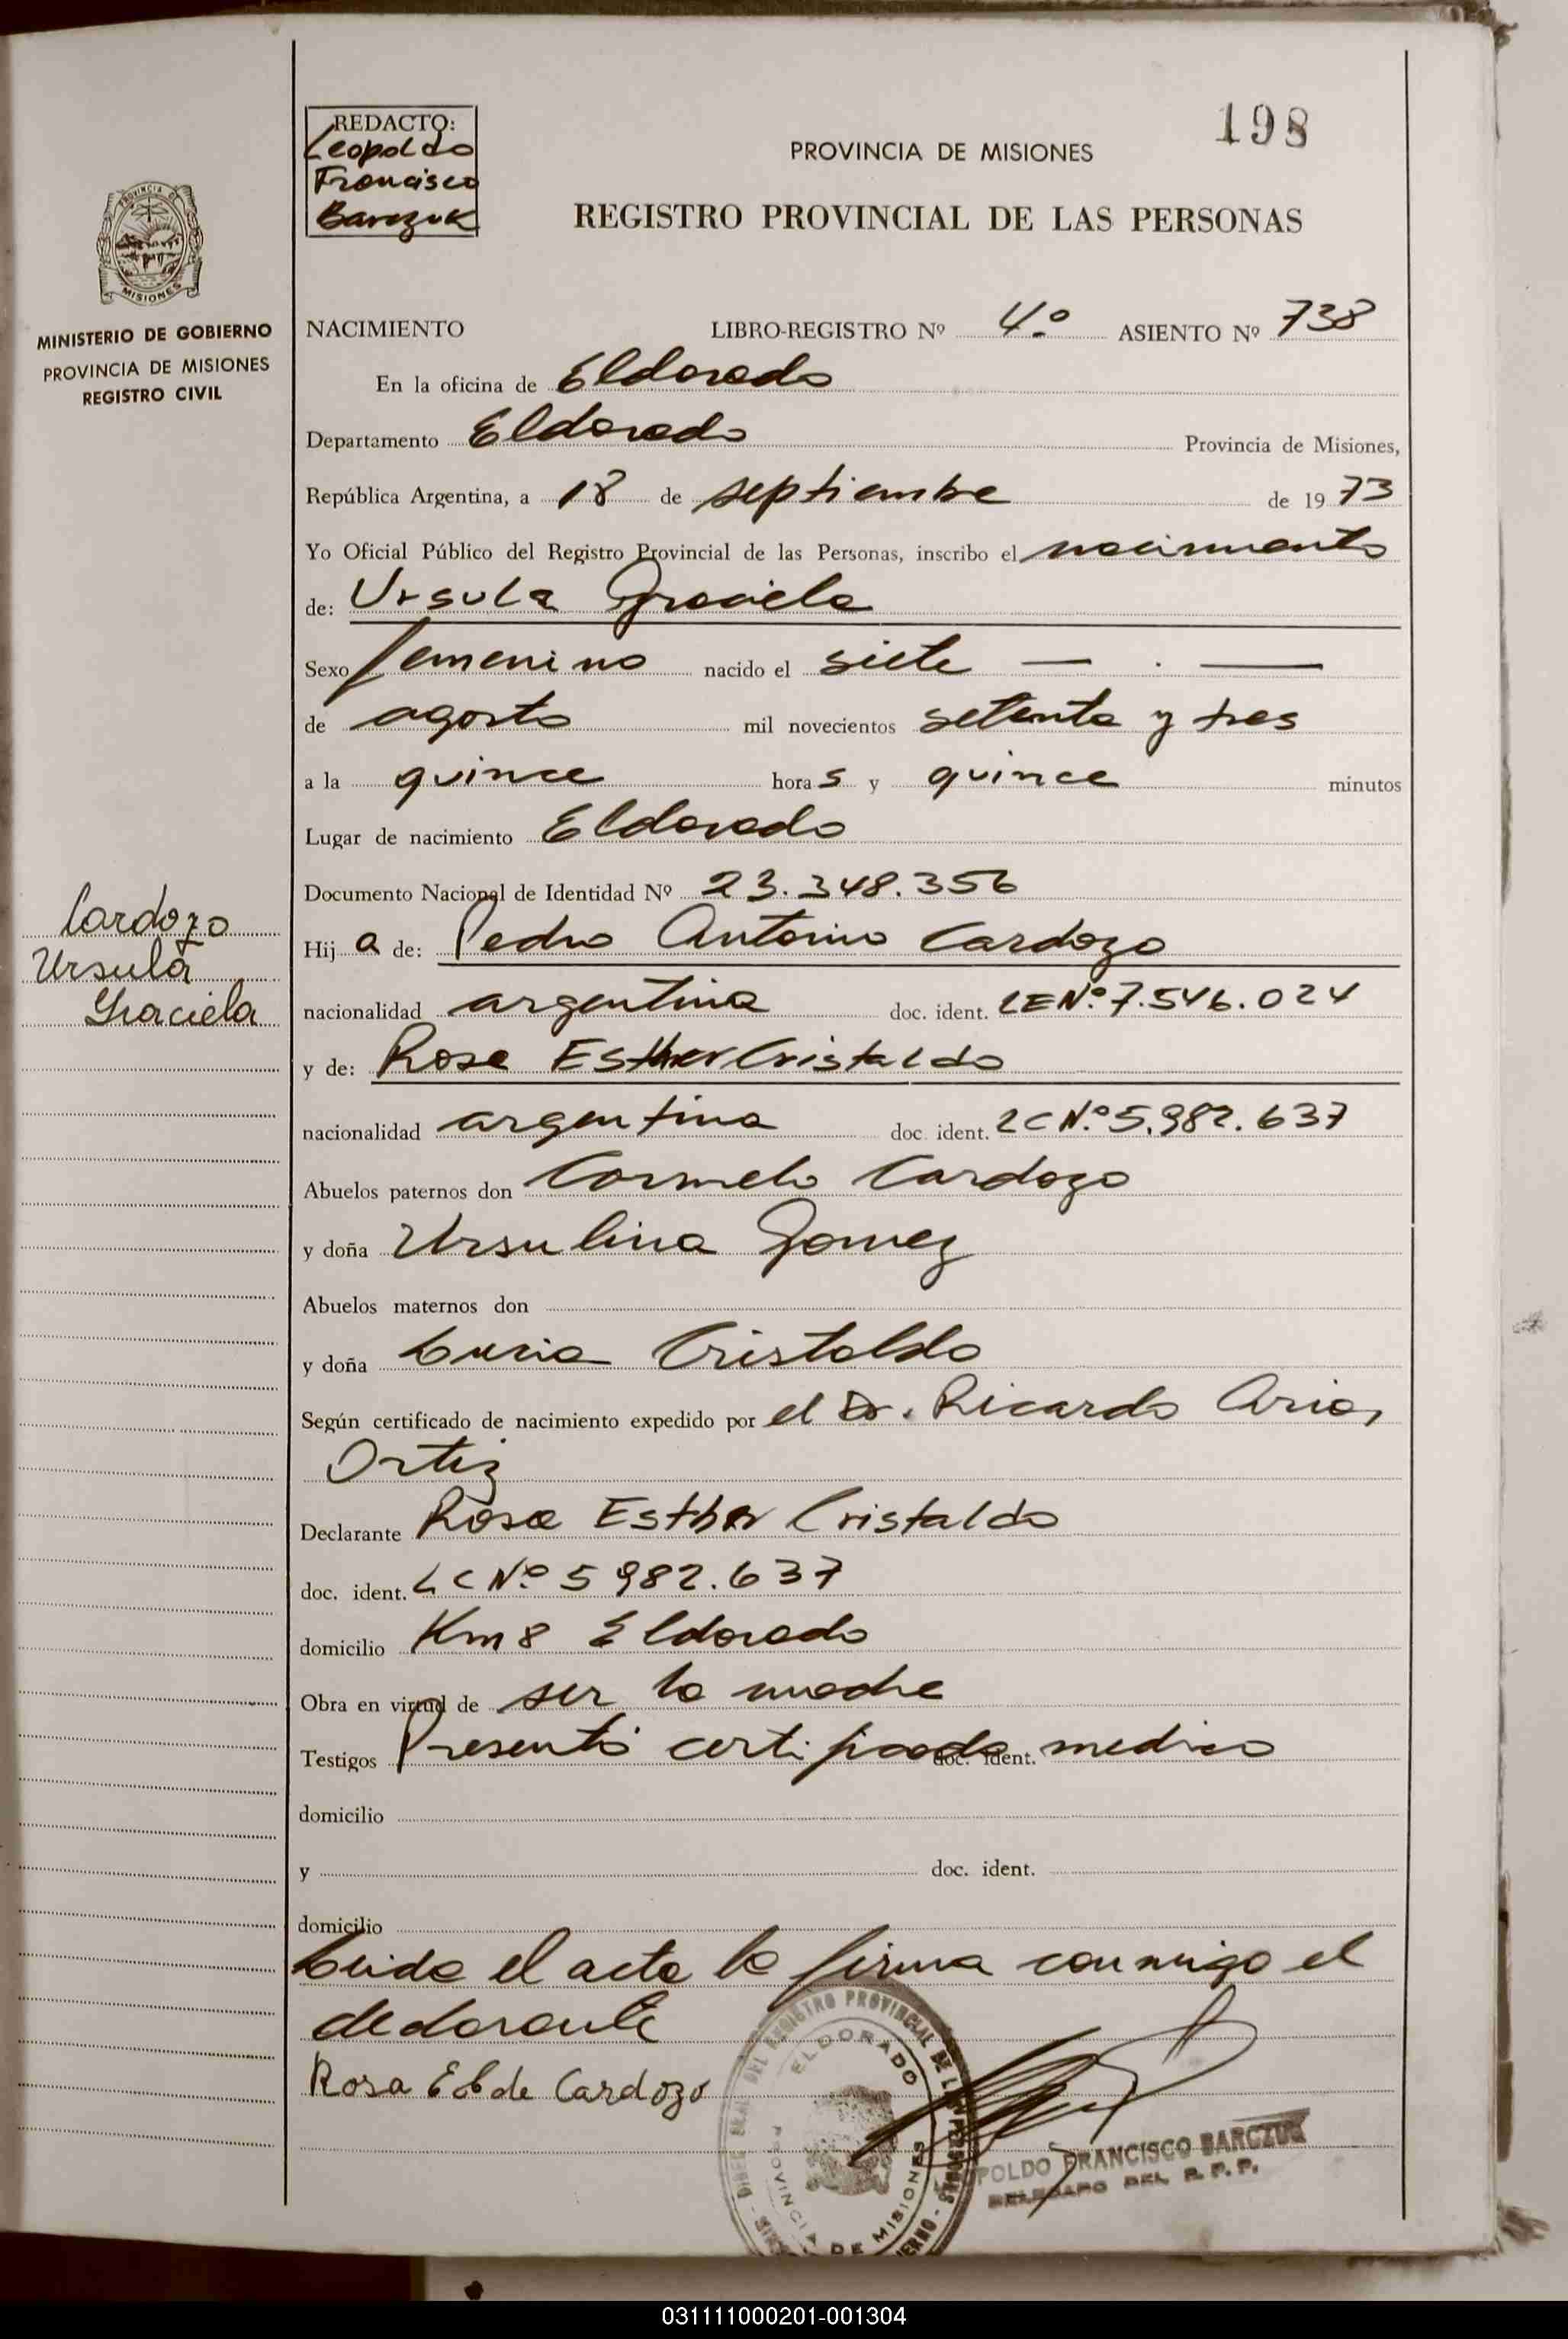 198
REDACTO:
Leopoldo
Francisco
Barczuk
PROVINCIA DE MISIONES
REGISTRO PROVINCIAL DE LAS PERSONAS
PROVINCIA DE
MISIONES
MINISTERIO DE GOBIERNO
PROVINCIA DE MISIONES
REGISTRO CIVIL
NACIMIENTO LIBRO-REGISTRO Nº 4º ASIENTO Nº 738
En la oficina de Eldorado
Departamento Eldorado Provincia de Misiones,
República Argentina, a 18 de septiembre de 1973
Yo Oficial Público del Registro Provincial de las Personas, inscribo el nacimiento
de: Ursula Graciela
Sexo femenino nacido el siete — . —
de agosto mil novecientos setenta y tres
a la quince horas y quince minutos
Lugar de nacimiento Eldorado
Documento Nacional de Identidad Nº 23.348.356
Cardozo
Ursula
Graciela
Hija de: Pedro Antonio Cardozo
nacionalidad argentina doc. ident. LE Nº 7.546.024
y de: Rosa Esther Cristaldo
nacionalidad argentina doc. ident. LC Nº 5.982.637
Abuelos paternos don Carmelo Cardozo
y doña Ursulina Gomez
Abuelos maternos don
y doña Lucia Cristaldo
Según certificado de nacimiento expedido por el Dr. Ricardo Arias
Ortiz
Declarante Rosa Esther Cristaldo
doc. ident. LC Nº 5 982.637
domicilio Km 8 Eldorado
Obra en virtud de ser la madre
Testigos Presentó certificado doc. ident. medico
domicilio
y doc. ident.
domicilio
Leida el acta la firma conmigo el
declarante
Rosa E de Cardozo
DEL REGISTRO PROVINCIAL DE LAS PERSONAS
ELDORADO
PROVINCIA DE MISIONES
POLDO FRANCISCO BARCZUK
DELEGADO DEL R. P. P.
031111000201-001304